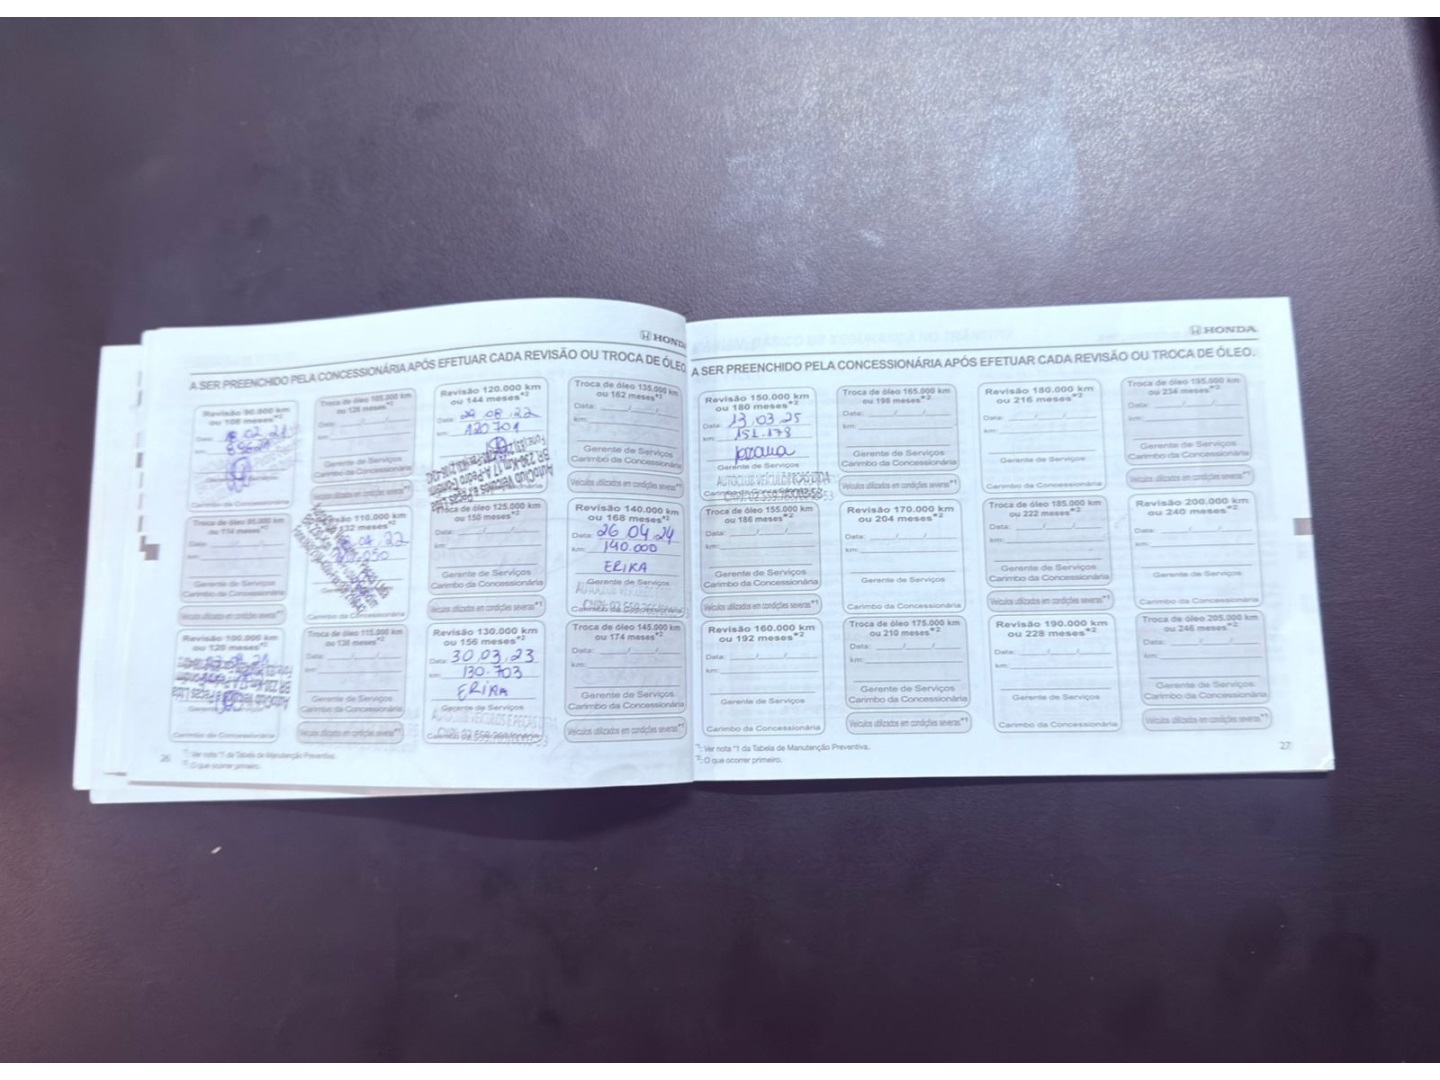 HONDA
A SER PREENCHIDO PELA CONCESSIONÁRIA APÓS EFETUAR CADA REVISÃO OU TROCA DE ÓLEO
Revisão 90.000 km
ou 108 meses*2
Data:
km:
Troca de óleo 95.000 km
ou 114 meses*2
Data:
km:
Gerente de Serviços
Carimbo da Concessionária
Veículos utilizados em condições severas*1
Revisão 100.000 km
ou 120 meses*2
Carimbo da Concessionária
Troca de óleo 105.000 km
ou 126 meses*2
Data:
km:
Gerente de Serviços
Carimbo da Concessionária
Veículos utilizados em condições severas*1
110.000 km
132 meses*2
Carimbo da Concessionária
Troca de óleo 115.000 km
ou 138 meses*2
Data:
km:
Gerente de Serviços
Carimbo da Concessionária
Veículos utilizados em condições severas*1
Revisão 120.000 km
ou 144 meses*2
Data: 29 08 22
km: 120 701
Troca de óleo 125.000 km
ou 150 meses*2
Data:
km:
Gerente de Serviços
Carimbo da Concessionária
Veículos utilizados em condições severas*1
Revisão 130.000 km
ou 156 meses*2
Data: 30 03 23
km: 130.703
ERIKA
Gerente de Serviços
AUTOCLUB VEÍCULOS E PEÇAS LTDA
Troca de óleo 135.000 km
ou 162 meses*2
Data:
km:
Gerente de Serviços
Carimbo da Concessionária
Veículos utilizados em condições severas*1
Revisão 140.000 km
ou 168 meses*2
Data: 26 04 24
km: 140.000
ERIKA
Gerente de Serviços
Troca de óleo 145.000 km
ou 174 meses*2
Data:
km:
Gerente de Serviços
Carimbo da Concessionária
Veículos utilizados em condições severas*1
26
*1: Ver nota *1 da Tabela de Manutenção Preventiva.
*2: O que ocorrer primeiro.
HONDA
A SER PREENCHIDO PELA CONCESSIONÁRIA APÓS EFETUAR CADA REVISÃO OU TROCA DE ÓLEO.
Revisão 150.000 km
ou 180 meses*2
Data: 13 03 25
km: 151.178
Gerente de Serviços
Troca de óleo 155.000 km
ou 186 meses*2
Data:
km:
Gerente de Serviços
Carimbo da Concessionária
Veículos utilizados em condições severas*1
Revisão 160.000 km
ou 192 meses*2
Data:
km:
Gerente de Serviços
Carimbo da Concessionária
Troca de óleo 165.000 km
ou 198 meses*2
Data:
km:
Gerente de Serviços
Carimbo da Concessionária
Veículos utilizados em condições severas*1
Revisão 170.000 km
ou 204 meses*2
Data:
km:
Gerente de Serviços
Carimbo da Concessionária
Troca de óleo 175.000 km
ou 210 meses*2
Data:
km:
Gerente de Serviços
Carimbo da Concessionária
Veículos utilizados em condições severas*1
Revisão 180.000 km
ou 216 meses*2
Data:
km:
Gerente de Serviços
Carimbo da Concessionária
Troca de óleo 185.000 km
ou 222 meses*2
Data:
km:
Gerente de Serviços
Carimbo da Concessionária
Veículos utilizados em condições severas*1
Revisão 190.000 km
ou 228 meses*2
Data:
km:
Gerente de Serviços
Carimbo da Concessionária
Troca de óleo 195.000 km
ou 234 meses*2
Data:
km:
Gerente de Serviços
Carimbo da Concessionária
Veículos utilizados em condições severas*1
Revisão 200.000 km
ou 240 meses*2
Data:
km:
Gerente de Serviços
Carimbo da Concessionária
Troca de óleo 205.000 km
ou 246 meses*2
Data:
km:
Gerente de Serviços
Carimbo da Concessionária
Veículos utilizados em condições severas*1
*1: Ver nota *1 da Tabela de Manutenção Preventiva.
*2: O que ocorrer primeiro.
27